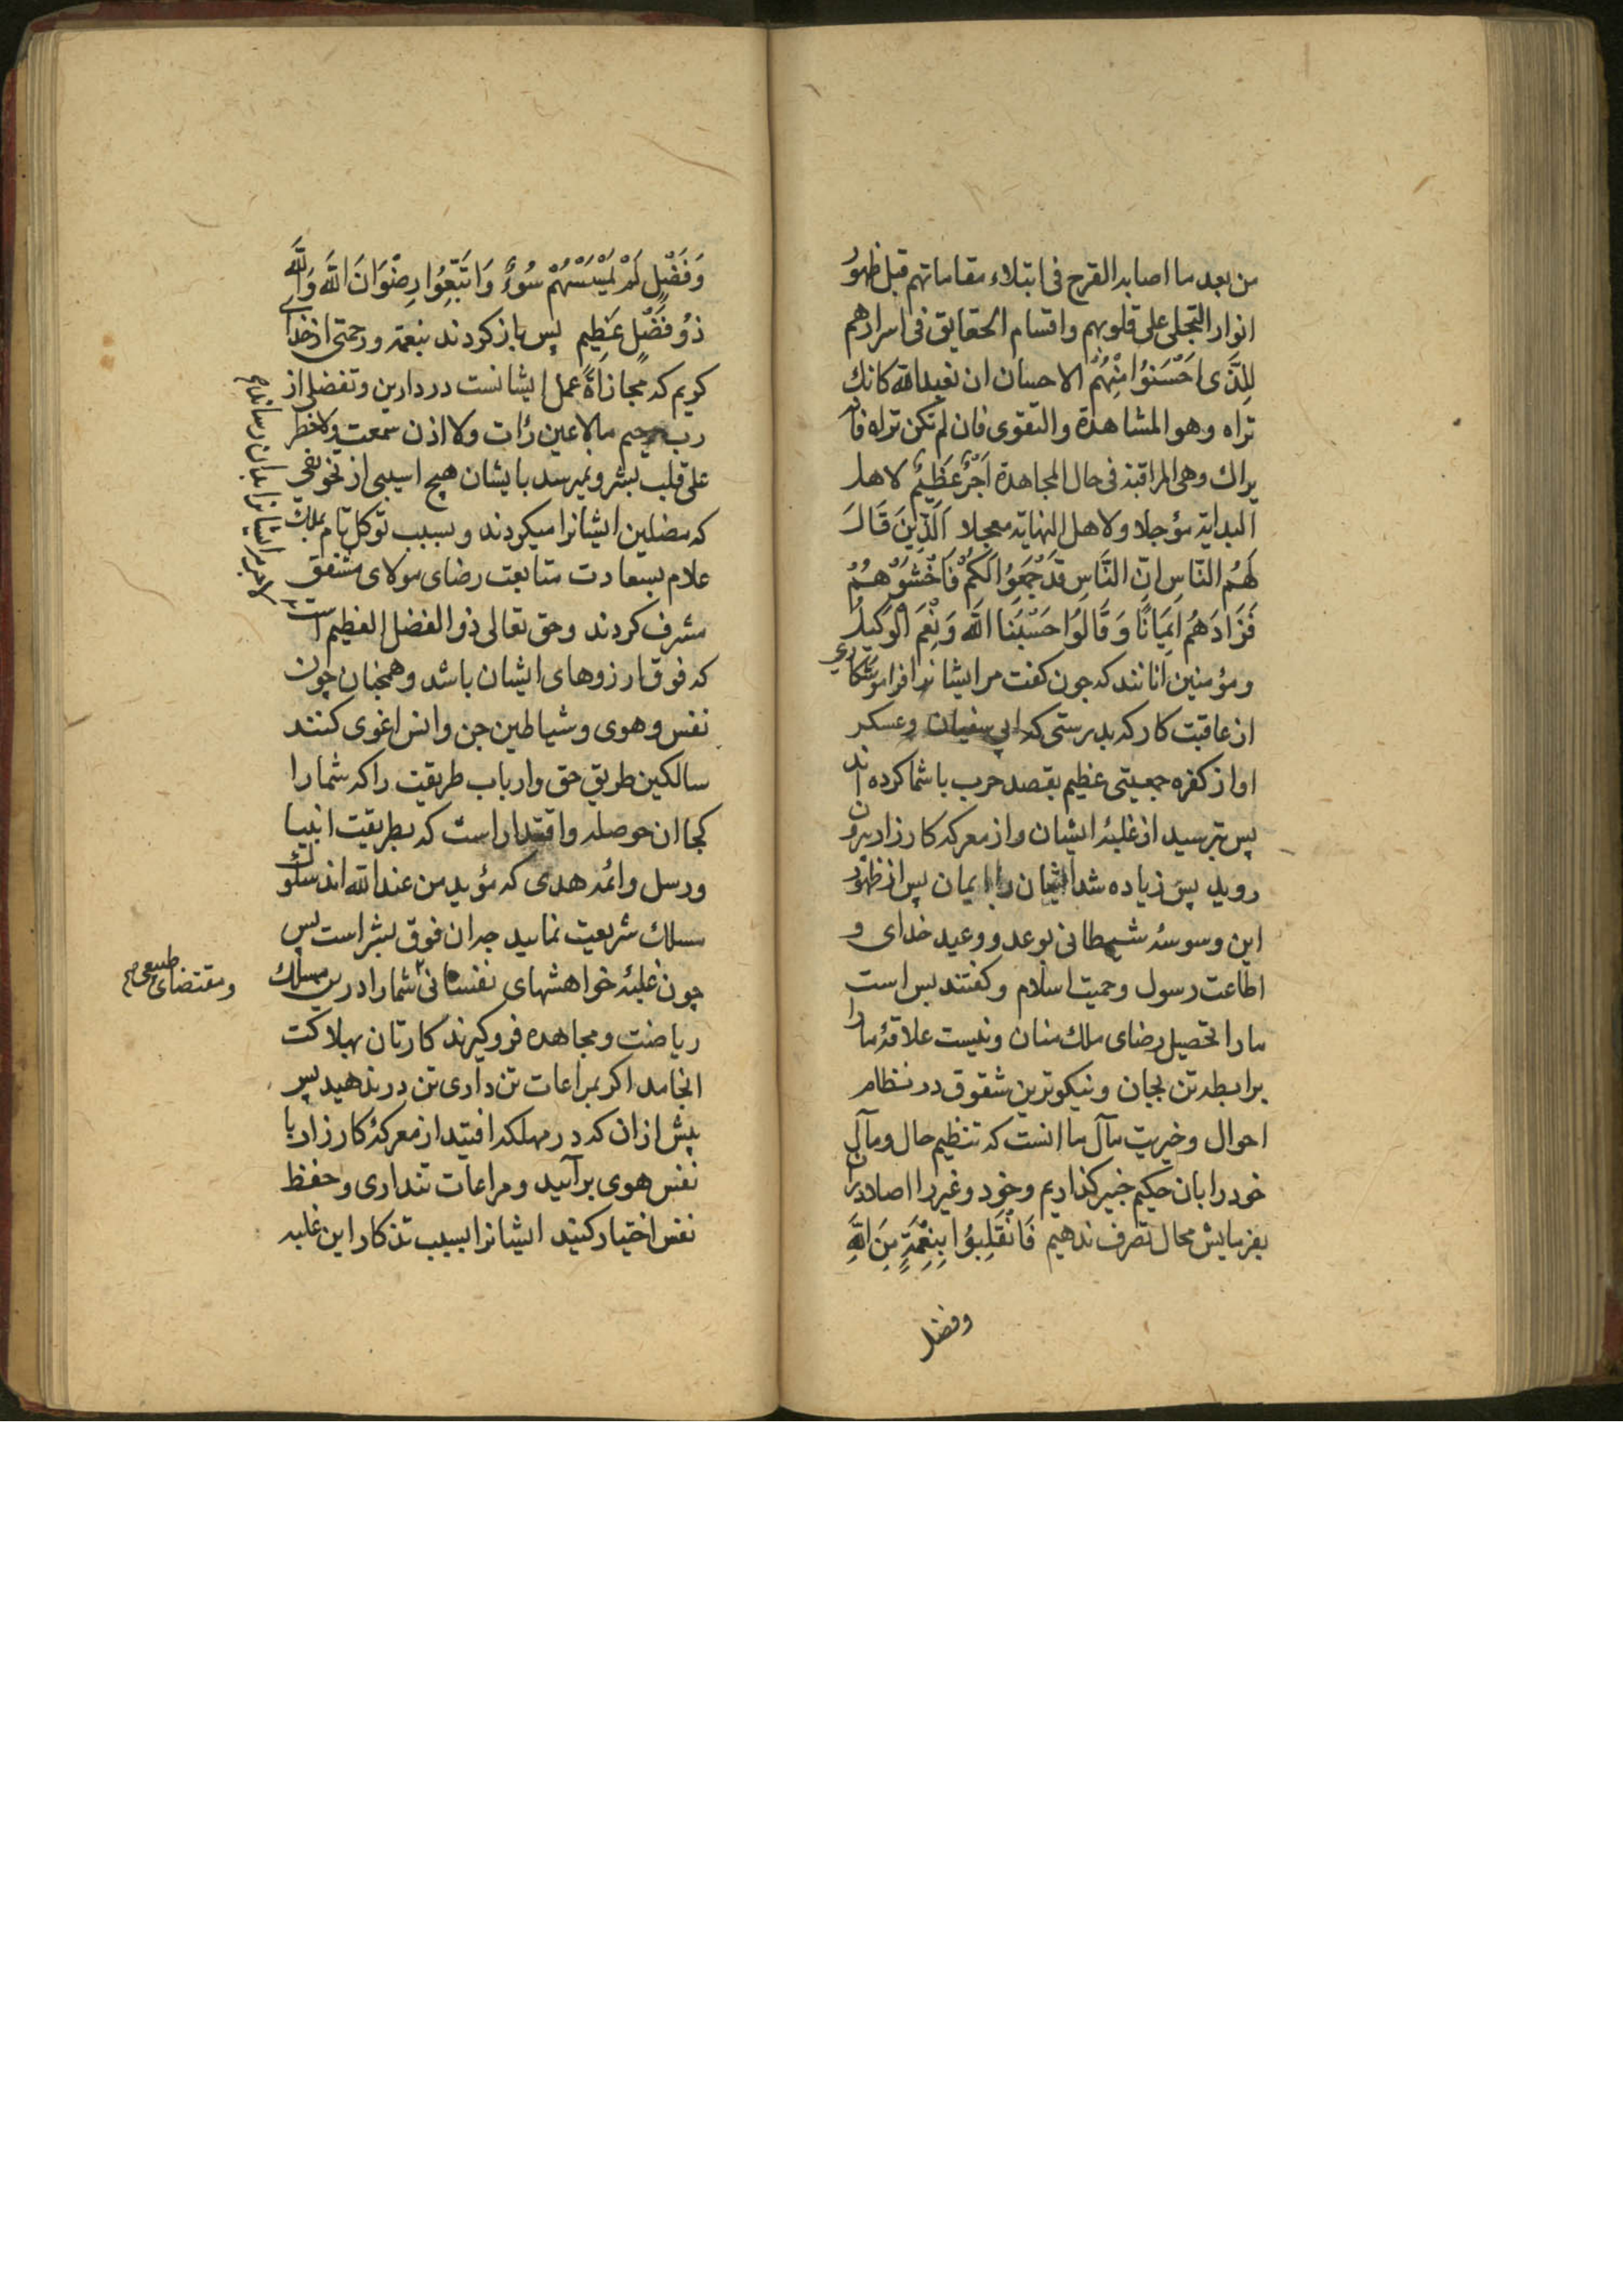 من بعد ما اصابه القرح فی ابتلاء مقاماتهم قبل ظهور
انوار التجلی علی قلوبهم واقتسام الحقایق فی اسرارهم
لِلذَّی اَحْسَنُوُا مِنْهُمْ الاحسان ان تعبد الله کانك
تراه وهو المشاهدة والتقوی فان لم تکن تراه فانه
یراك وهی المراقبة فی حال المجاهدة اَجْرٌ عَظِیْمٌ لاهل
البدایة مؤجلا ولاهل النهایة معجلا اَلَّذِینَ قَالَ
لَهُمُ النَّاسِ اِنّ النَّاسِ قَدْ جَمَعُوُا لَکُمْ فَاخْشَوْهُمْ
فَزَادَهُمْ اِیمَانًا وَ قَالُوُا حَسْبُنَا اللّٰهَ وَ نِعْمَ الْوَکِیلُ
ومؤمنین انانند که جون کفت مر ایشانرا فراموشکاری
از عاقبت کار که بدرستی که ابی سفیان وعسکر
او از کفره جمعیتی عظیم بقصد حرب با شما کرده اند
پس بترسید از غلبهٔ ایشان واز معرکه کارزار بیرون
روید پس زیاده شد ایشان را ایمان پس از ظهور
این وسوسهٔ شیطانی بوعد ووعید خدای و
اطاعت رسول وحمیت اسلام وکفتند بس است
مارا تحصیل رضای ملك منان ونیست علاقهٔ مارا
برابطه تن بجان ونیکوترین شقوق در نظام
احوال وخیریت مآل ما انست که تنظیم حال ومآل
خود را بان حکیم خبیر کذاریم وخود وغیر را اصلا دران
بفرمایش مجال تصرف ندهیم فَانْقَلِبُوُا بِنِعْمَةٍ مِنَ اللّٰهِ
وفضل
وَفَضْلٍ لَمْ یَمْسَسْهُمْ سُوُءٌ وَاتَّبَعُوُا رِضْوَانَ اللّٰهَ وَاللّٰهَ
ذُو فَضْلٍ عَظِیمٍ پس باز کردند بنعمة ورحمتی از خدای
کریم که مجازاةً عمل ایشانست در دارین وتفضلی از
رب رحیم مالا عین رأت ولا اذن سمعت ولا خطر
علی قلب بشر ونمیرسد بایشان هیچ اسیبی از تخویفی
که مضلین ایشانرا میکردند وبسبب توکل تام بملك
علام بسعادت متابعت رضای مولای مشفق
مشرف کردند وحق تعالی ذو الفضل العظیم است
که فوق ارزوهای ایشان باشد وهمچنان چون
نفس وهوی وشیاطین جن وانس اغوی کنند
سالکین طریق حق وارباب طریقت را که شما را
کجا ان حوصله واقتدار است که بطریقت انبیا
ورسل وائمه هدی که مؤید من عند الله اند سلوك
مسلك شریعت نمایید جه ان فوق بشر است پس
چون غلبهٔ خواهشهای نفسانی شما را در این مسلك
ومقتضای طبیعی صح
ریاضت ومجاهده فروکیرند کارتان بهلاکت
انجامد اکر بمراعات تن داری تن در ندهید پس
پیش از ان که در مهلکه افتید از معرکهٔ کارزار با
نفس هوی برآئید ومراعات تنداری وحفظ
نفس اختیار کنید ایشانرا بسبب تذکار این غلبه